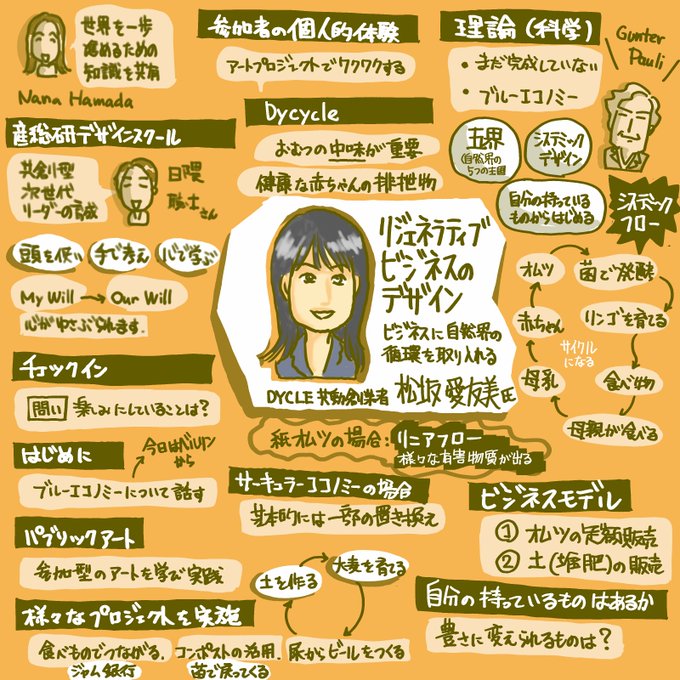 世界を一歩
進めるための
知識を共有
Nana Hamada
産総研デザインスクール
共創型
次世代
リーダーの育成
日隈
聡士さん
頭を使い
手で考え
心で学ぶ
My Will → Our Will
心がゆさぶられます.
チェックイン
問い 楽しみにしていることは?
はじめに
今日はベルリン
から
ブルーエコノミーについて話す
パブリックアート
参加型のアートを学び実践
様々なプロジェクトを実施
食べものでつながる.
ジャム銀行
コンポストの活用.
菌で戻ってくる
尿からビールをつくる
土を作る
大麦を育てる
参加者の個人的体験
アートプロジェクトでワクワクする
Dycycle
おむつの中味が重要
健康な赤ちゃんの排泄物
リジェネラティブ
ビジネスの
デザイン
ビジネスに自然界の
循環を取り入れる
DYCLE 共動創業者 松坂 愛友美氏
紙オムツの場合: リニアフロー
様々な有害物質が出る
サーキュラーエコノミーの場合
基本的には一部の置き換え
理論(科学)
・まだ完成していない
・ブルーエコノミー
Gunter
Pauli
五界
(自然界の
5つの王国
システミック
デザイン
自分の持っている
ものからはじめる
システミック
フロー
オムツ
菌で発酵
リンゴを育てる
食べ物
母親が食べる
母乳
赤ちゃん
サイクル
になる
ビジネスモデル
① オムツの定額販売
② 土(堆肥)の販売
自分の持っているものはあるか
豊さに変えられるものは?